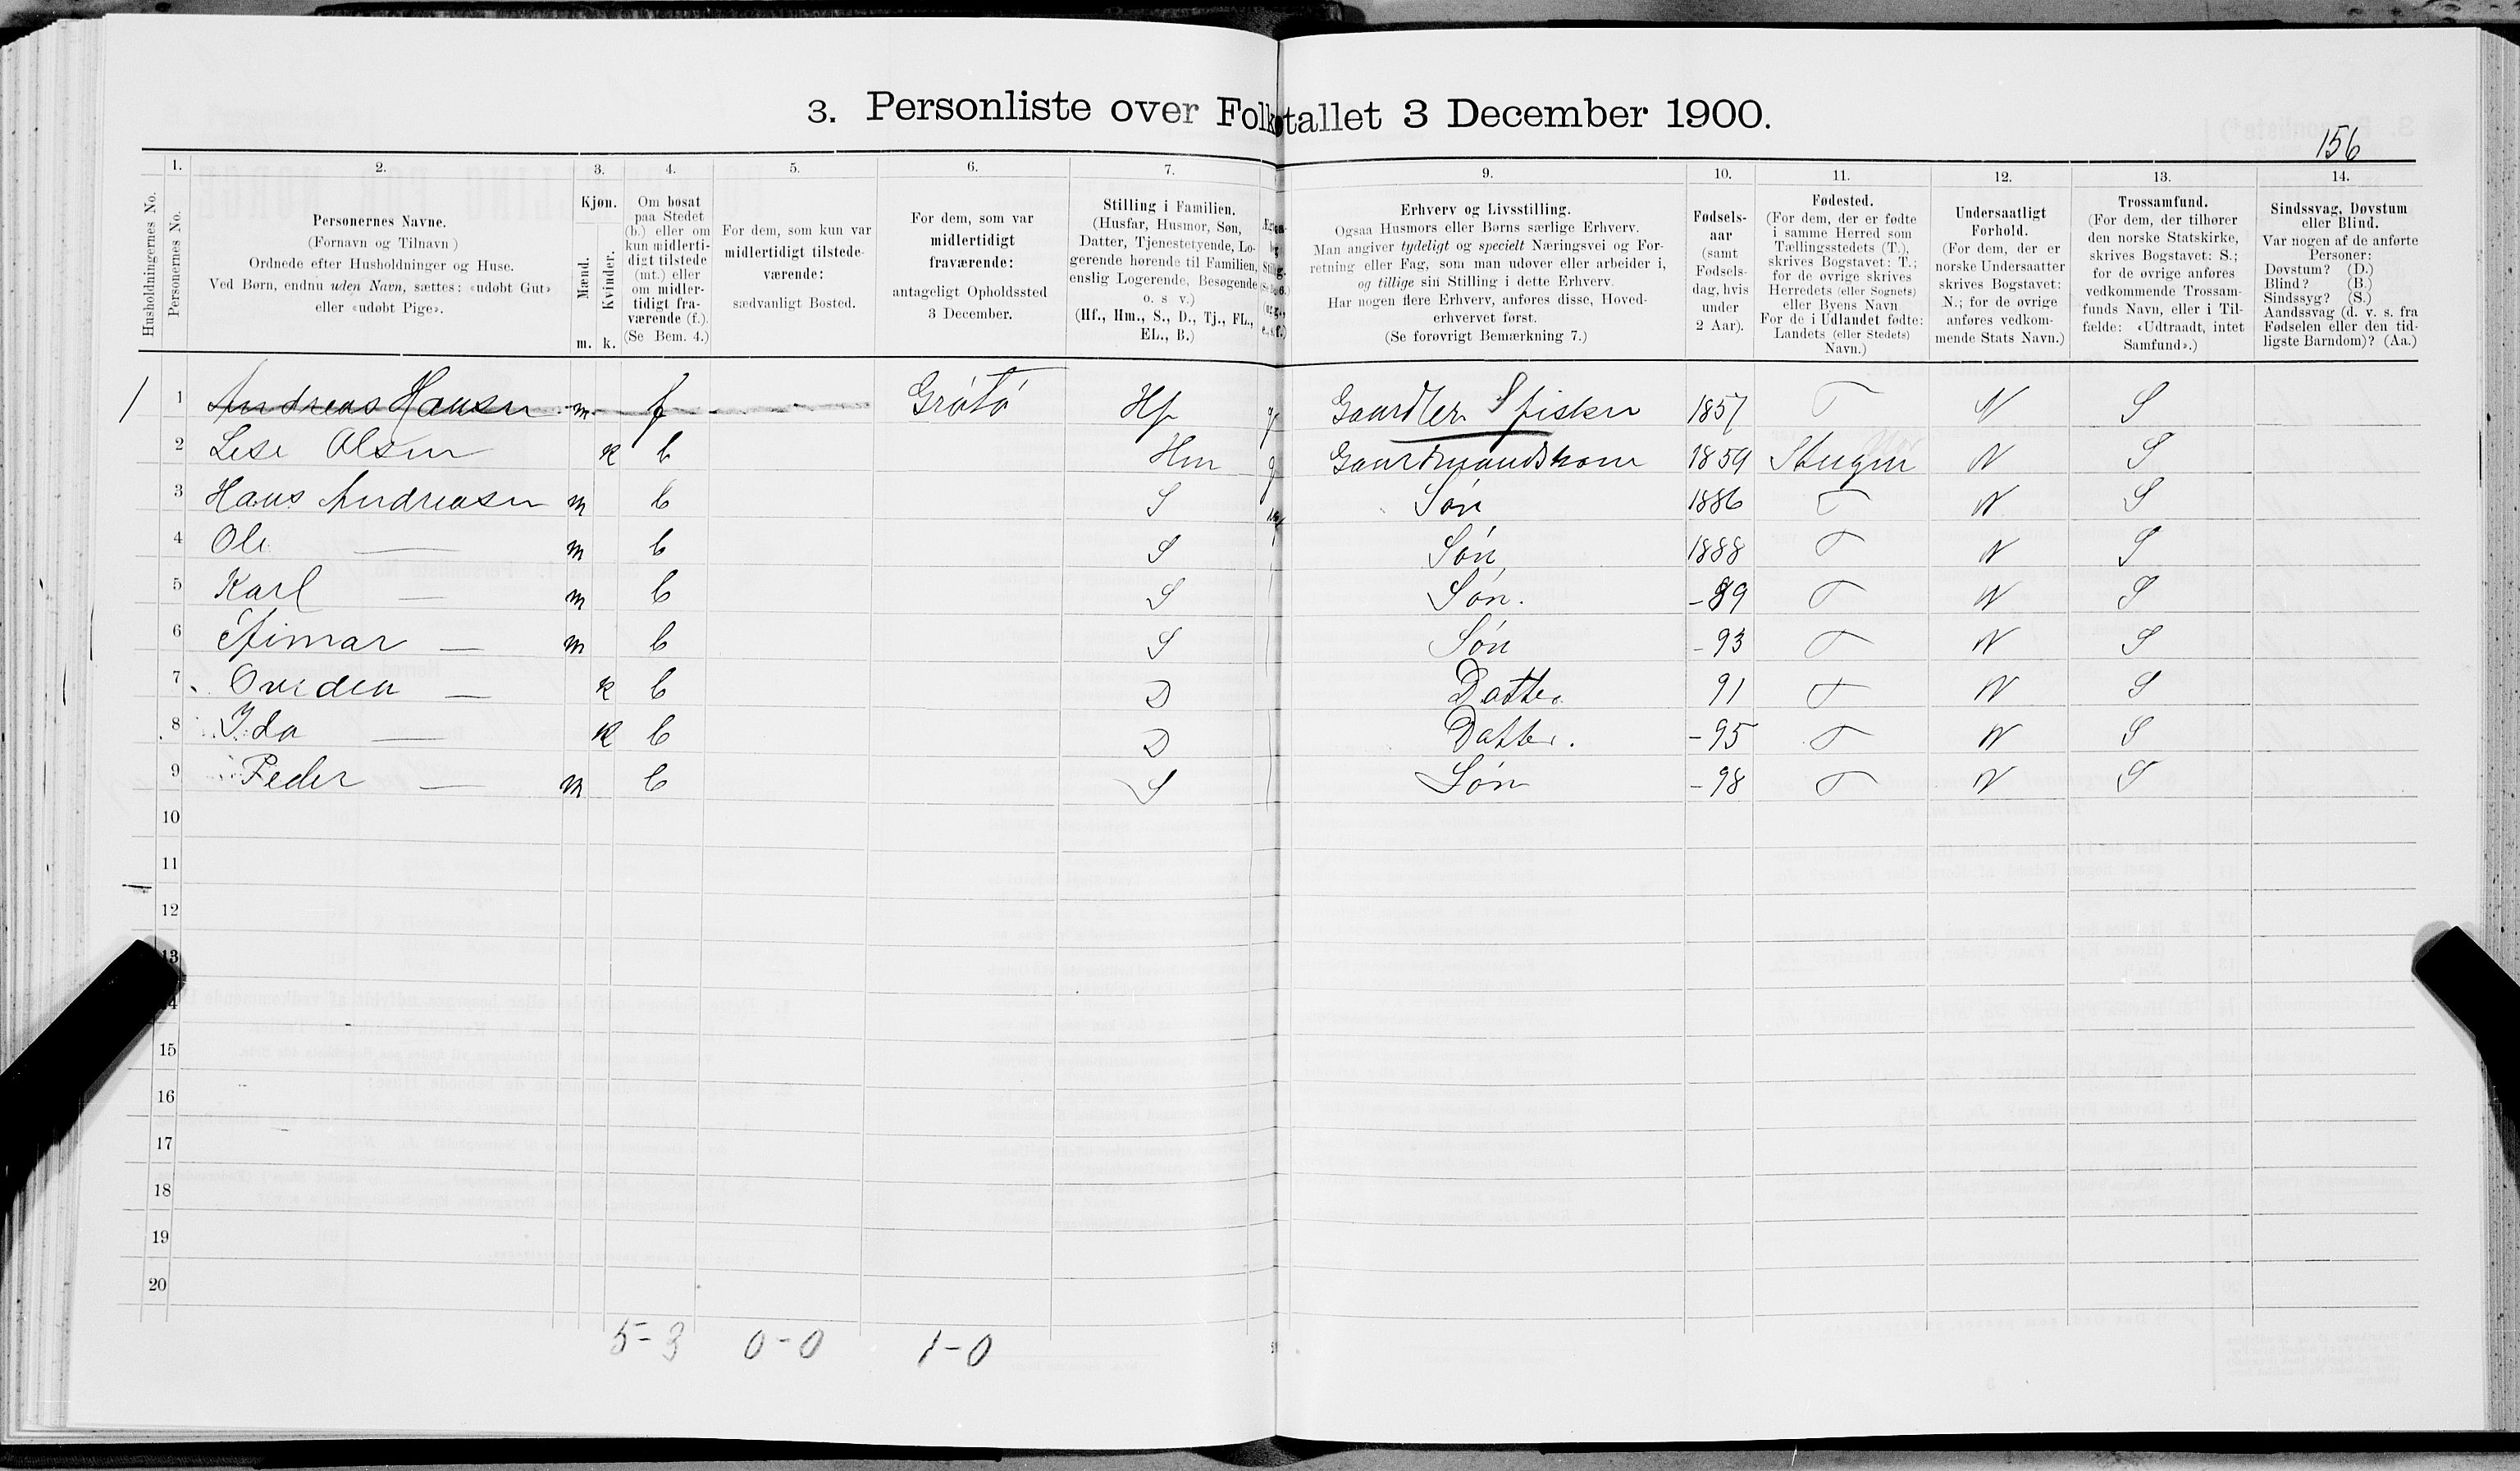 3. Personliste over Folketallet 3 December 1900.
156
1. 2. 3. 4. 5. 6. 7. 9. 10. 11. 12. 13. 14.
Husholdningernes No.
Personernes No.
Personernes Navne.
(Fornavn og Tilnavn)
Ordnede efter Husholdninger og Huse.
Ved Børn, endnu uden Navn, sættes: «udøbt Gut»
eller «udøbt Pige».
Kjøn.
Mænd.
Kvinder.
m. k.
Om bosat
paa Stedet
(b.) eller om
kun midlerti-
digt tilstede
(mt.) eller
om midler-
tidigt fra-
værende (f.).
(Se Bem. 4.)
For dem, som kun var
midlertidigt tilstede-
værende:
sædvanligt Bosted.
For dem, som var
midlertidigt
fraværende:
antageligt Opholdssted
3 December.
Stilling i Familien.
(Husfar, Husmor, Søn,
Datter, Tjenestetyende, Lo-
gerende hørende til Familien,
enslig Logerende, Besøgende
o. s v.)
(Hf., Hm., S., D., Tj., FL.,
EL., B.)
Erhverv og Livsstilling.
Ogsaa Husmors eller Børns særlige Erhverv.
Man angiver tydeligt og specielt Næringsvei og For-
retning eller Fag, som man udøver eller arbeider i,
og tillige sin Stilling i dette Erhverv.
Har nogen flere Erhverv, anføres disse, Hoved-
erhvervet først.
(Se forøvrigt Bemærkning 7.)
Fødsels-
aar
(samt
Fødsels-
dag, hvis
under
2 Aar).
Fødested.
(For dem, der er fødte
i samme Herred som
Tællingsstedets (T.),
skrives Bogstavet: T.;
for de øvrige skrives
Herredets (eller Sognets)
eller Byens Navn
For de i Udlandet fødte:
Landets (eller Stedets)
Navn.)
Undersaatligt
Forhold.
(For dem, der er
norske Undersaatter
skrives Bogstavet:
N.; for de øvrige
anføres vedkom-
mende Stats Navn.)
Trossamfund.
(For dem, der tilhører
den norske Statskirke,
skrives Bogstavet: S.;
for de øvrige anføres
vedkommende Trossam-
funds Navn, eller i Til-
fælde: «Udtraadt, intet
Samfund».)
Sindssvag, Døvstum
eller Blind.
Var nogen af de anførte
Personer:
Døvstum? (D.)
Blind? (B.)
Sindssyg? (S.)
Aandssvag (d. v. s. fra
Fødselen eller den tid-
ligste Barndom)? (Aa.)
1 1 Andreas Hansen m f Grøtø Hf g Gaardbr Fisker 1857 T N S
2 Lese Olsen k b Hm g Gaardmandskone 1859 N S
3 Hans Andreasen m b S Søn 1886 T N S
4 Ole — m b S Søn 1888 T N S
5 Karl — m b S Søn. -89 T N S
6 — m b S Søn -93 T N S
7 Ovidea — k b D Datter 91 T N S
8 Ida — k b D Datter. -95 T N S
9 Peder — m b S Søn -98 T N S
10
11
12
13
14
15
16
17
18
19
20
5-3 0-0 1-0